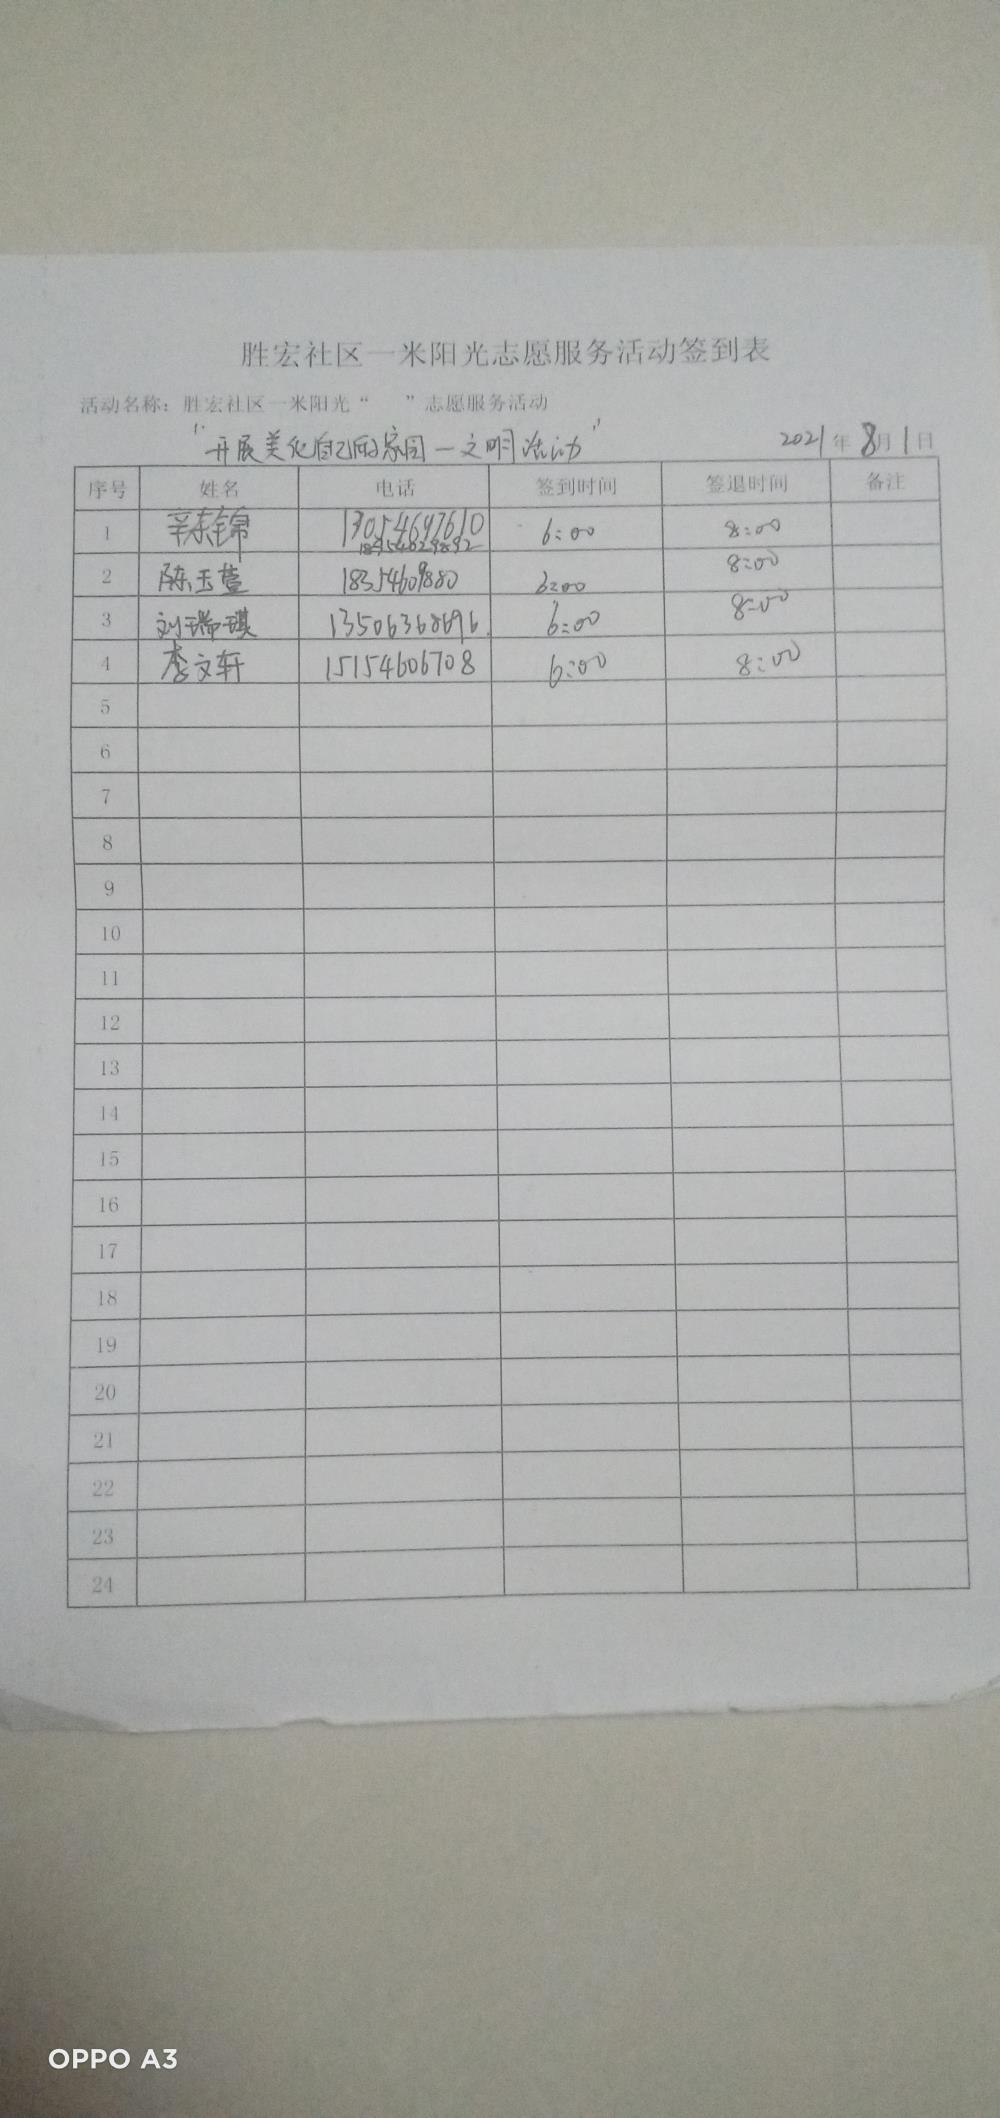 胜宏社区一米阳光志愿服务活动签到表
活动名称：胜宏社区一米阳光“ ”志愿服务活动
“开展美化自己的家园一文明活动” 2021年8月1日
序号 姓名 电话 签到时间 签退时间 备注
1 辛东锦 13054697610 6:00 8:00
2 陈玉萱 18354609880 6:00 8:00
3 刘瑞琪 13506368696 6:00 8:00
4 李文轩 15154606708 6:00 8:00
5
6
7
8
9
10
11
12
13
14
15
16
17
18
19
20
21
22
23
24
OPPO A3